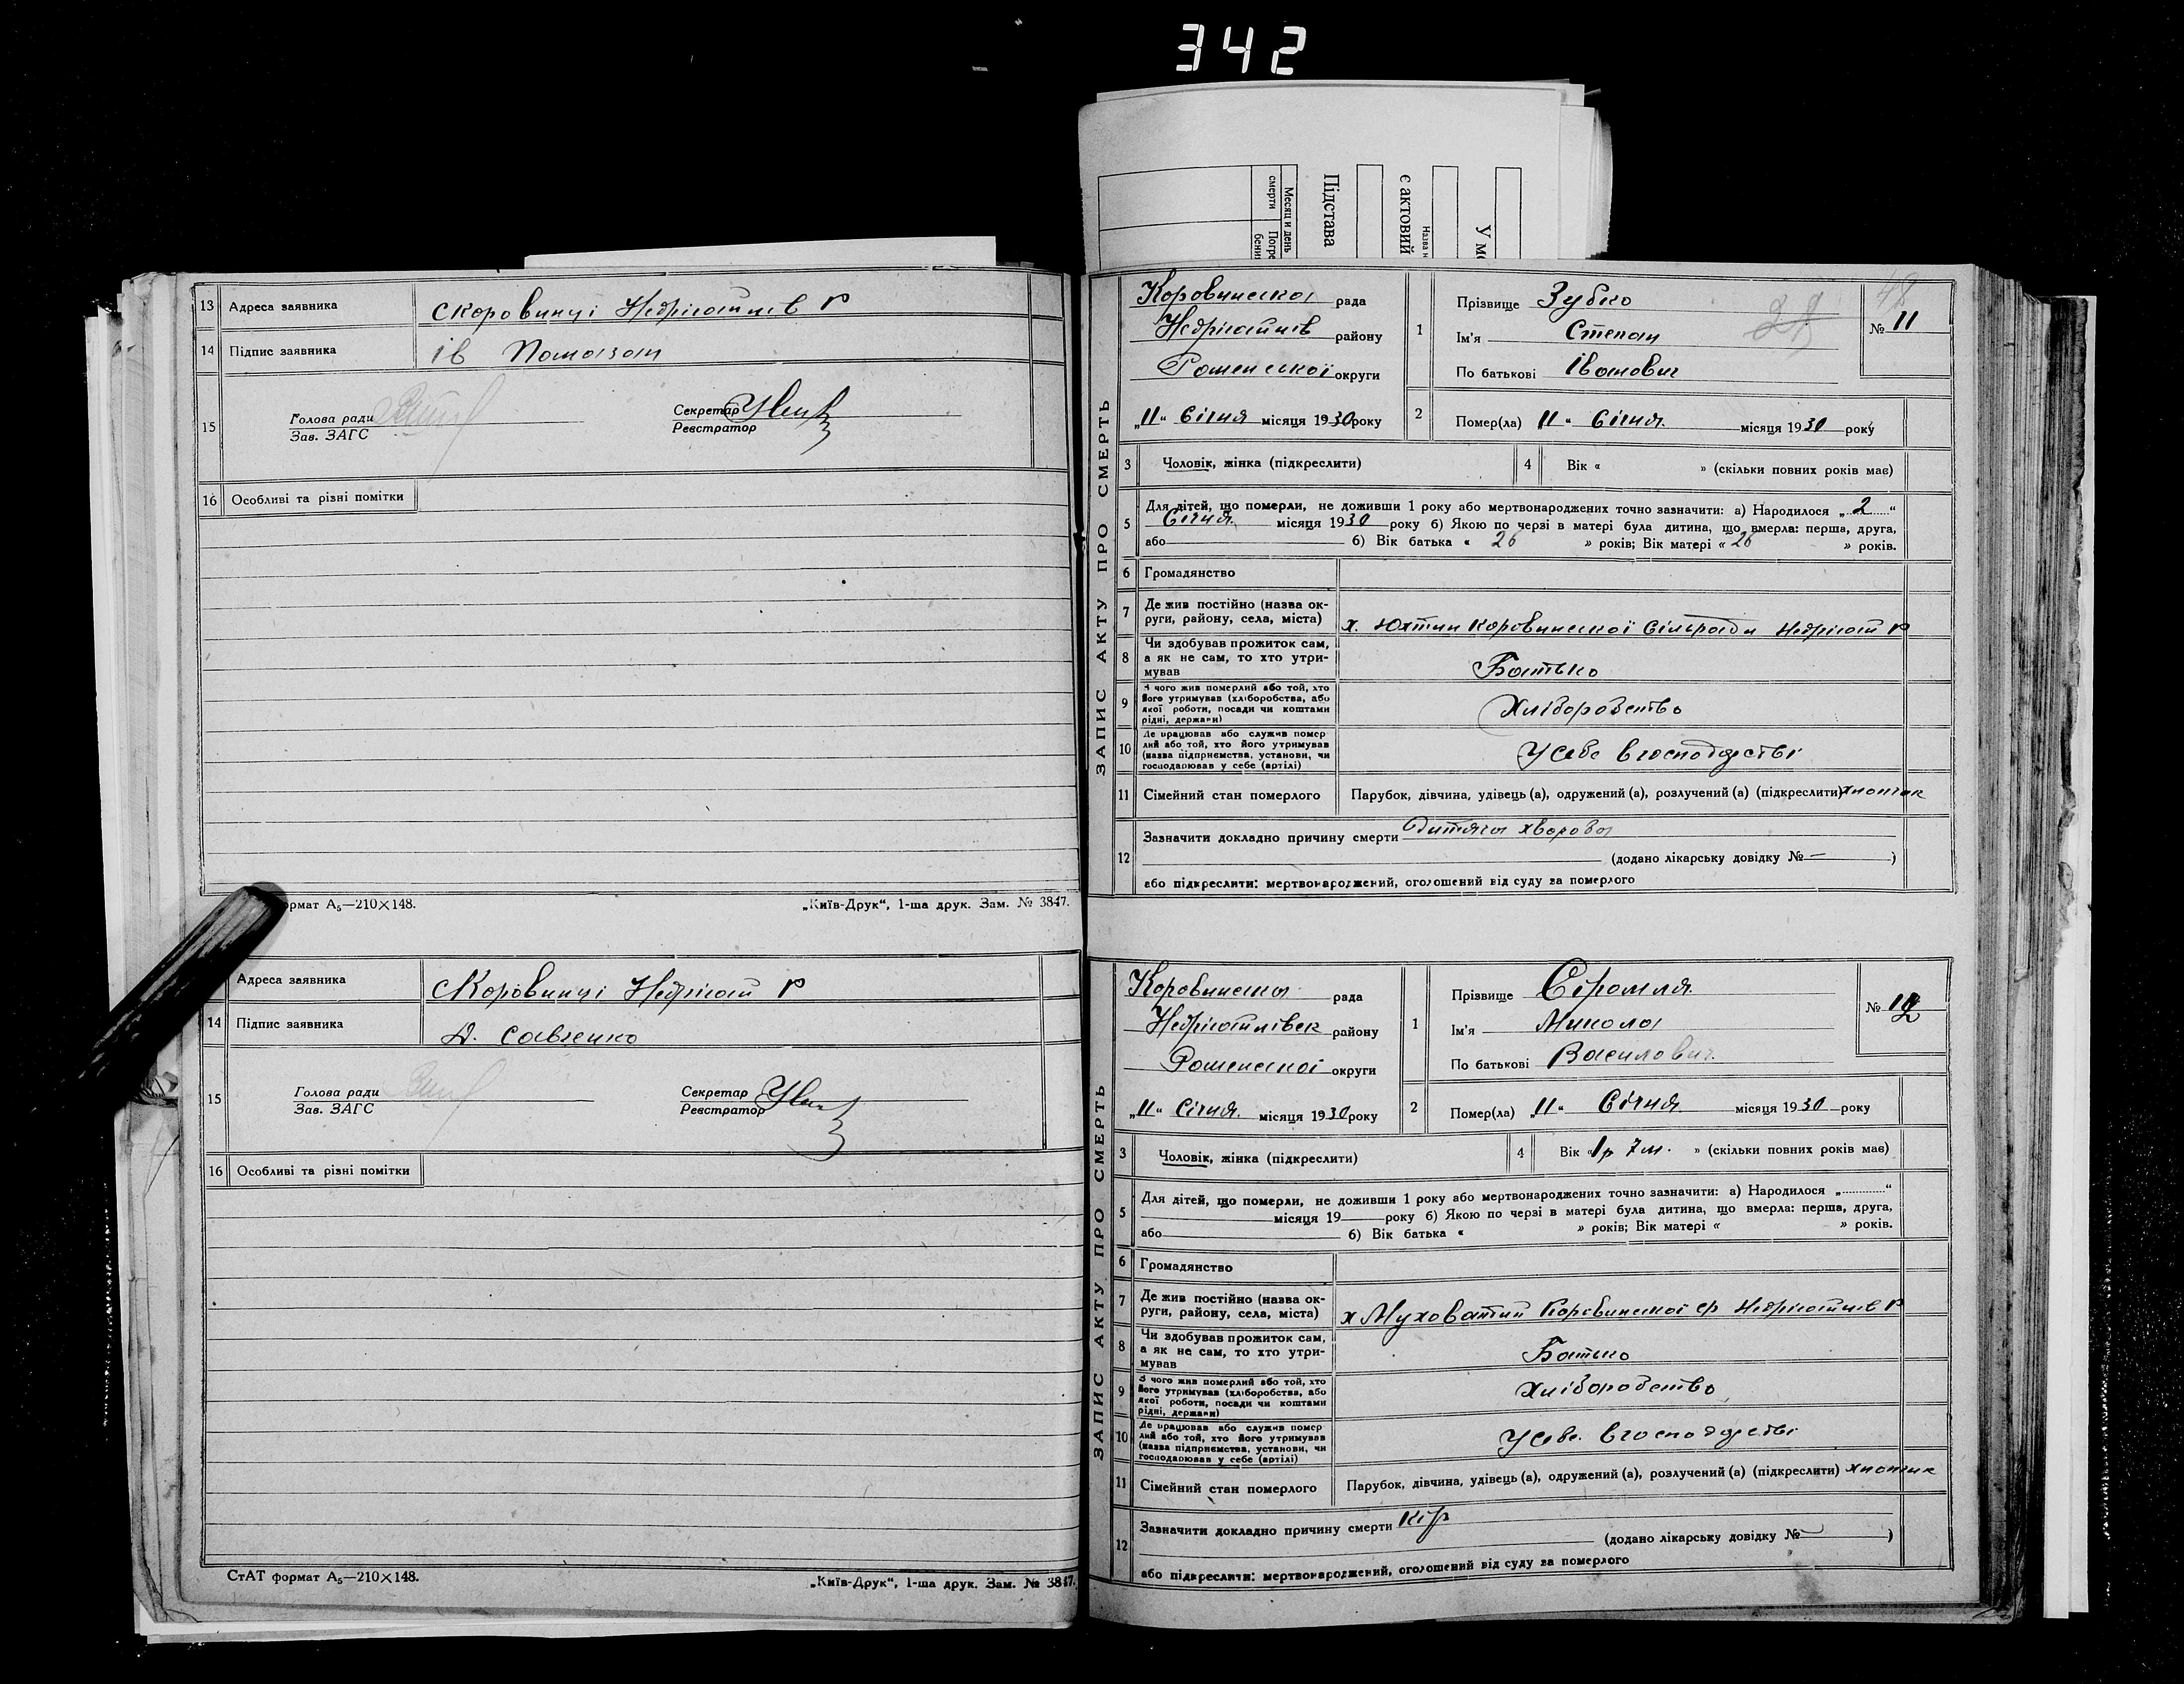 342
Месяц и день
смерти
Погре
бени
Підстава
є актовий
Назва н
У мо
13 Адреса заявника с Коровинці Недригайлів Р
14 Підпис заявника Ів Помазан
15 Голова ради
Зав. ЗАГС
Секретар
Реєстратор
16 Особливі та різні помітки
формат А₅—210×148.
„Київ-Друк“, 1-ша друк. Зам. № 3847.
Адреса заявника с Коровинці Недригай Р
14 Підпис заявника Д. Савченко
15 Голова ради
Зав. ЗАГС
Секретар
Реєстратор
16 Особливі та різні помітки
СтАТ формат А₅—210×148.
„Київ-Друк“, 1-ша друк. Зам. № 3847.
ЗАПИС АКТУ ПРО СМЕРТЬ
Коровинська рада
Недригайлів району
Роменської округи
„11“ Січня місяця 1930 року
1 Прізвище Зубко
Ім'я Степан
По батькові Іванович
48
№ 11
2 Помер(ла) 11 “ Січня місяця 1930 року
3 Чоловік, жінка (підкреслити)
4 Вік « » (скільки повних років має)
5 Для дітей, що померли, не доживши 1 року або мертвонароджених точно зазначити: а) Народилося „ 2 “
Січня місяця 1930 року б) Якою по черзі в матері була дитина, що вмерла: перша, друга,
або б) Вік батька « 26 » років; Вік матері « 26 » років.
6 Громадянство
7 Де жив постійно (назва ок-
руги, району, села, міста) х. Юхтин Коровинської Сільради Недригай Р
8 Чи здобував прожиток сам,
а як не сам, то хто утри-
мував Батько
9 З чого жив померлий або той, хто
його утримував (хліборобства, або
якої роботи, посади чи коштами
рідні, держави) Хліборобство
10 Де працював або служив помер
лий або той, хто його утримував
(назва підприємства, установи, чи
господарював у себе (артілі) У себе в господарстві
11 Сімейний стан померлого Парубок, дівчина, удівець (а), одружений (а), розлучений (а) (підкреслити) хлопчик
12 Зазначити докладно причину смерти Дитяча хвороба
(додано лікарську довідку № — )
або підкреслити: мертвонароджений, оголошений від суду за померлого
ЗАПИС АКТУ ПРО СМЕРТЬ
Коровинська рада
Недригайлівськ району
Роменської округи
„11“ Січня місяця 1930 року
1 Прізвище Сіромля
Ім'я Микола
По батькові Василович
№ 12
2 Помер(ла) „11“ Січня місяця 1930 року
3 Чоловік, жінка (підкреслити)
4 Вік « 1р 7м. » (скільки повних років має)
5 Для дітей, що померли, не доживши 1 року або мертвонароджених точно зазначити: а) Народилося „ “
місяця 19 року б) Якою по черзі в матері була дитина, що вмерла: перша, друга,
або б) Вік батька « » років; Вік матері « » років.
6 Громадянство
7 Де жив постійно (назва ок-
руги, району, села, міста) х Муховатий Коровинської ср Недригайлів Р
8 Чи здобував прожиток сам,
а як не сам, то хто утри-
мував Батько
9 З чого жив померлий або той, хто
його утримував (хліборобства, або
якої роботи, посади чи коштами
рідні, держави) Хліборобство
10 Де працював або служив помер
лий або той, хто його утримував
(назва підприємства, установи, чи
господарював у себе (артілі) У себе в господарстві
11 Сімейний стан померлого Парубок, дівчина, удівець (а), одружений (а), розлучений (а) (підкреслити) хлопчик
12 Зазначити докладно причину смерти Кір
(додано лікарську довідку № — )
або підкреслити: мертвонароджений, оголошений від суду за померлого